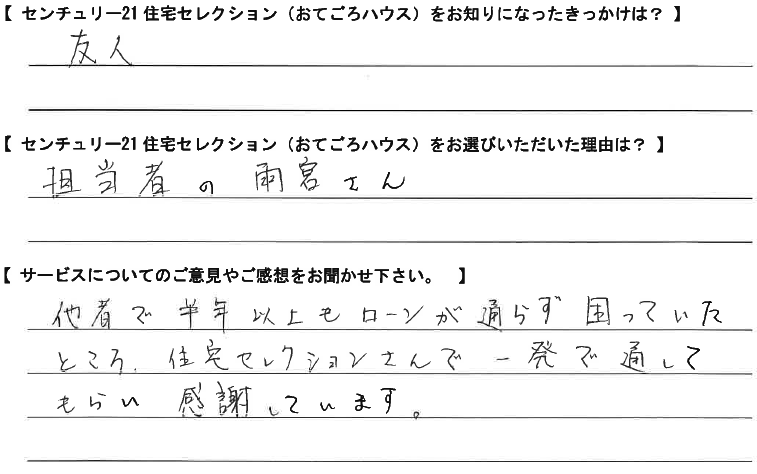 【 センチュリー21 住宅セレクション（おてごろハウス）をお知りになったきっかけは？ 】
友人
【 センチュリー21 住宅セレクション（おてごろハウス）をお選びいただいた理由は？ 】
担当者の雨宮さん
【 サービスについてのご意見やご感想をお聞かせ下さい。 】
他者で半年以上もローンが通らず困っていた
ところ、住宅セレクションさんで一発で通して
もらい感謝しています。